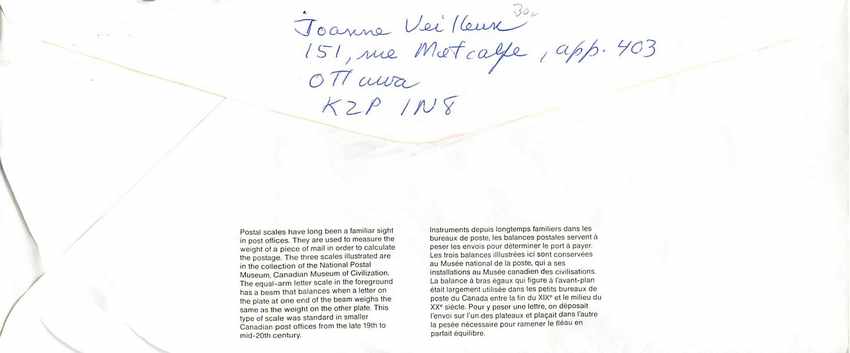 30.
Joanne Veilleux
151, rue Metcalfe, app. 403
Ottawa
K2P 1N8
Postal scales have long been a familiar sight
in post offices. They are used to measure the
weight of a piece of mail in order to calculate
the postage. The three scales illustrated are
in the collection of the National Postal
Museum, Canadian Museum of Civilization.
The equal-arm letter scale in the foreground
has a beam that balances when a letter on
the plate at one end of the beam weighs the
same as the weight on the other plate. This
type of scale was standard in smaller
Canadian post offices from the late 19th to
mid-20th century.
Instruments depuis longtemps familiers dans les
bureaux de poste, les balances postales servent à
peser les envois pour déterminer le port à payer.
Les trois balances illustrées ici sont conservées
au Musée national de la poste, qui a ses
installations au Musée canadien des civilisations.
La balance à bras égaux qui figure à l'avant-plan
était largement utilisée dans les petits bureaux de
poste du Canada entre la fin du XIXe et le milieu du
XXe siècle. Pour y peser une lettre, on déposait
l'envoi sur l'un des plateaux et plaçait dans l'autre
la pesée nécessaire pour ramener le fléau en
parfait équilibre.